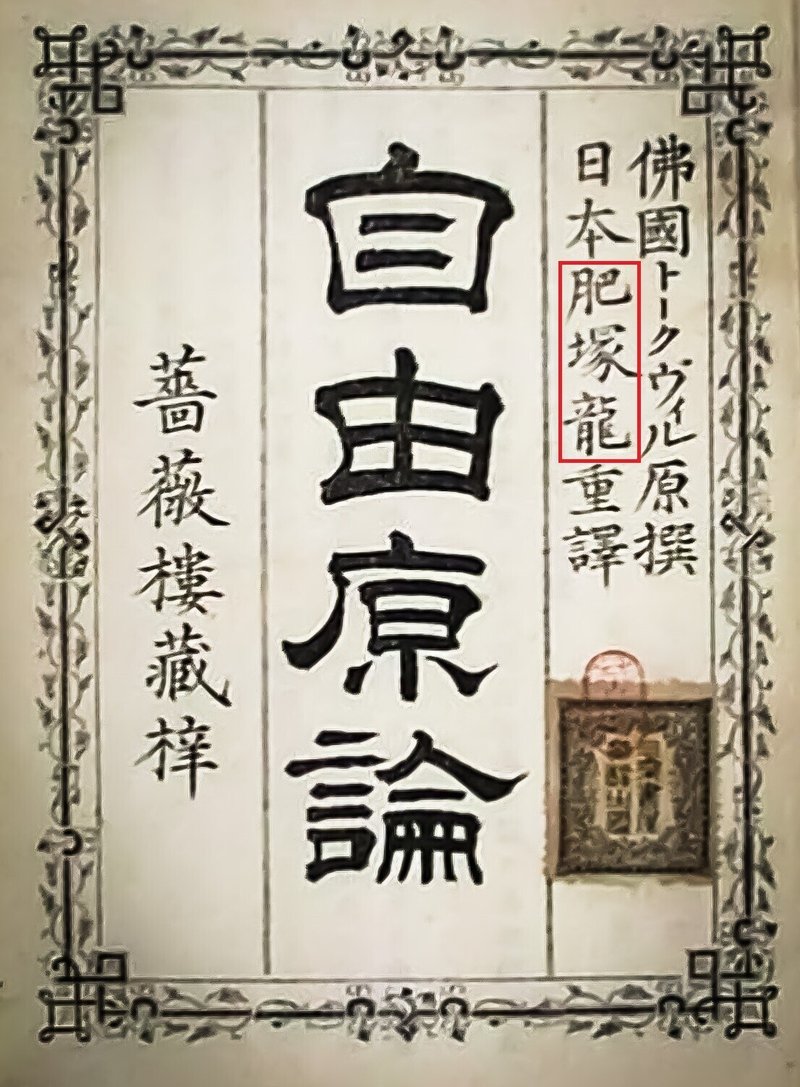 佛國トークヴィル原撰
日本肥塚龍重譯
自由原論
薔薇樓藏梓